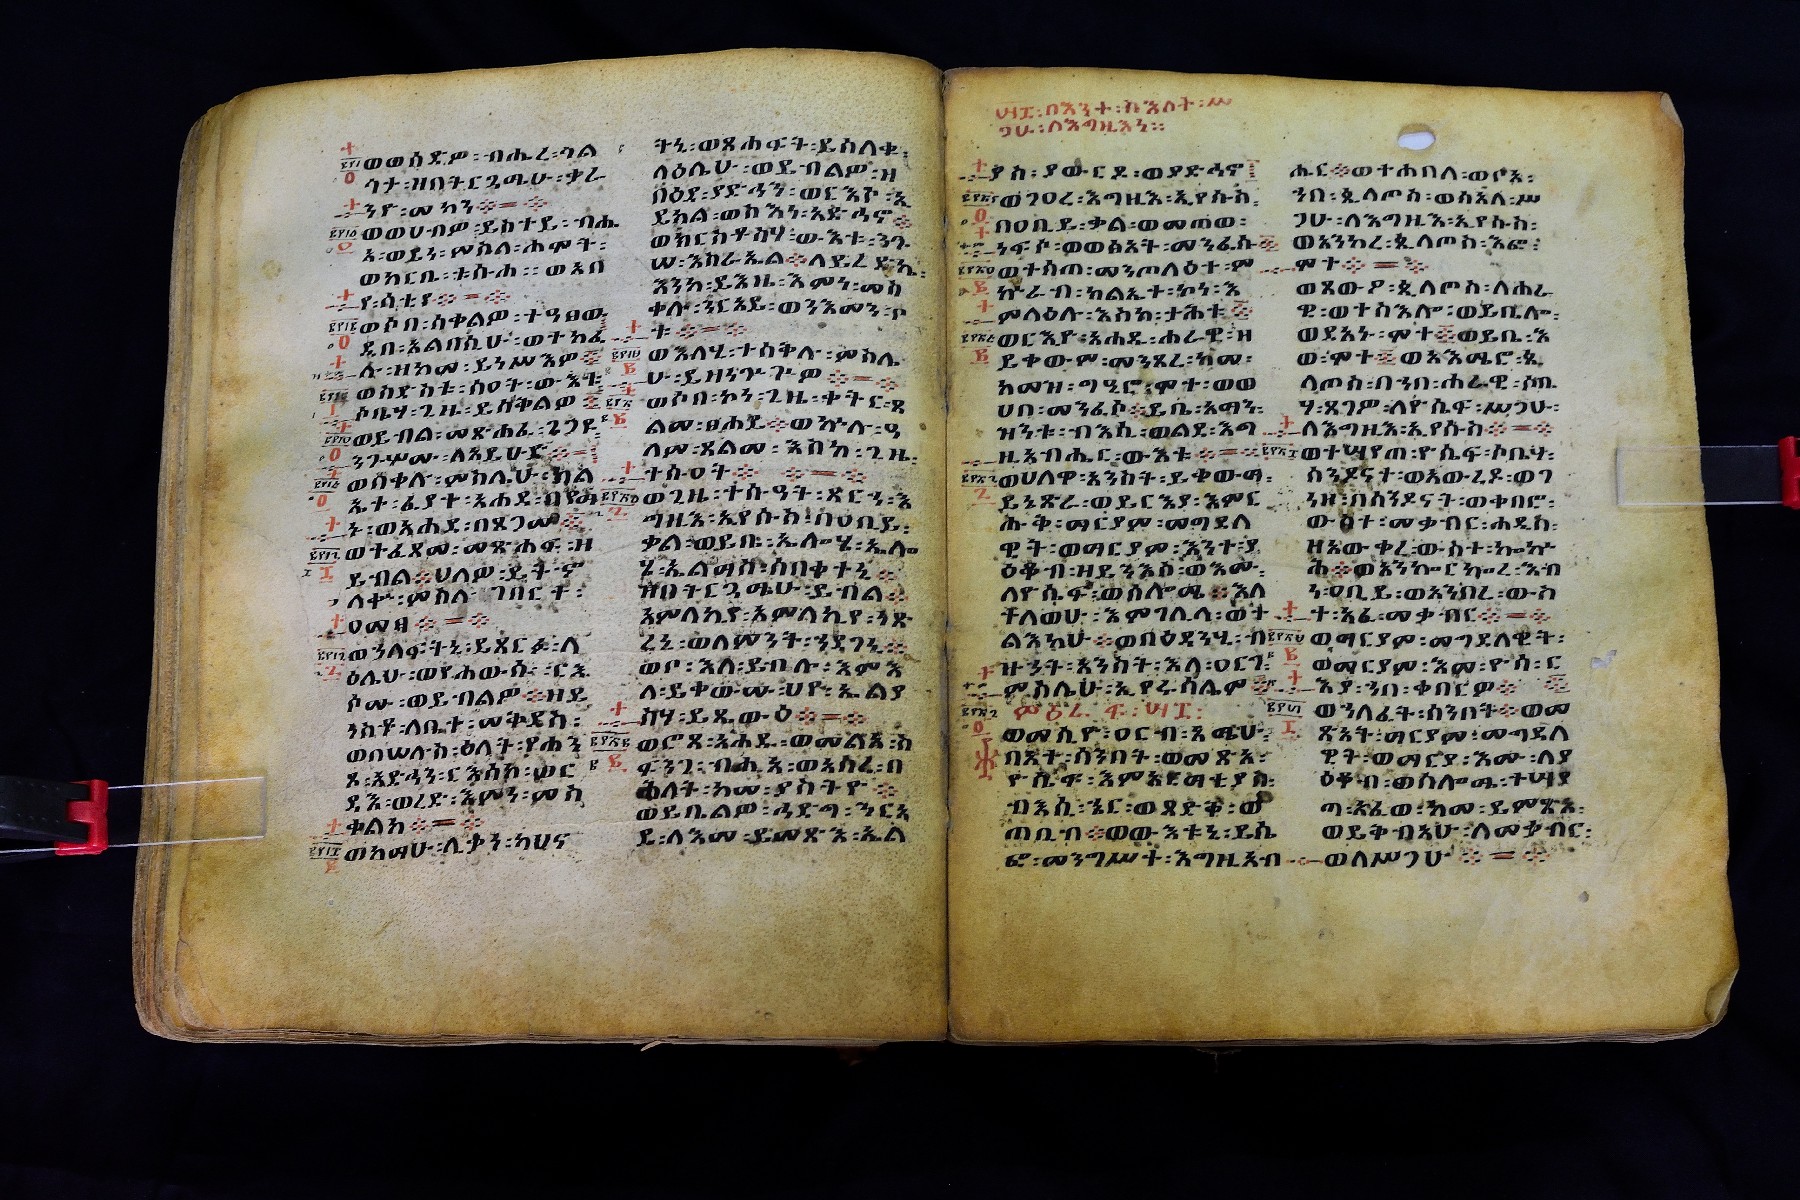 ወወሰድዎ፡ብሔረ፡ጎል
ጎታ፡ዝበትርጓሜሁ፡ቃራ
ንዮ፡መካን፨=፨
ወወሀብዎ፡ይስተይ፡ብሒ
አ፡ወይነ፡መስለ፡ሐሞት፡
ወከርቤ፡ቱስሐ፡፡ወአበ
የ፡ሰቲየ፨=፨
ወሶበ፡ሰቀልዎ፡ተዓፀወ፡
ዲበ፡አልባሲሁ፡ወተካፈ
ሉ፡ዘከመ፡ይነሥእዎ፨
ወስድስቱ፡ሰዐት፡ውእቱ፡
ሶቤሃ፡ጊዜ፡ይሰቅልዎ፨
ወይብል፡መጽሐፈ፡ጌጋዩ፡
ንጉሦሙ፡ለአይሁድ፨=
ወሰቀሉ፡ምስሌሁ፡ክል
ኤተ፡ፈያተ፡አሐደ፡በየማ
ኑ፡ወአሐደ፡በጸጋሙ፨
ወተፈጸመ፡መጽሐፍ፡ዘ
ይብል፨ህለዎ፡ይትኆ
ለቍ፡ምስለ፡ገበርተ፡
ዐመፃ፨=፨
ወኀላፍትኒ፡ይጸርፉ፡ለ
ዕሌሁ፡ወየሐውሱ፡ርእ
ሶሙ፡ወይብልዎ፨ዘይ
ንስቶ፡ለቤተ፡መቅደስ፡
ወበሠሉስ፡ዕለት፡የሐን
ጾ፡አድኅን፡ርእሰከ፡ወር
ዲእ፡ወረድ፡እምን፡መስ
ቀልከ፨=፨
ወከማሁ፡ሊቃነ፡ካህና
ትኒ፡ወጸሐፍት፡ይሳለቁ፡
ላዕሌሁ፡ወይብልዎ፡ዘ
በዕደ፡ያድኅን፡ወርእሶ፡ኢ
ይክል፡ወክንአነ፡አድኅኖ፨
ወክርስቶስሃ፡ውእቱ፡ንጉ
ሠ፡እስራኤል፨ለይረድኬ፡
እንከ፡ይእዜ፡እምነ፡መስ
ቀሉ፡ንርአይ፡ወንእመን፡ቦ
ቱ፨=፨
ወእለሂ፡ተሰቅሉ፡ምስሌ
ሁ፡ይዘነጕጕዎ፨=፨
ወሶበ፡ኮነ፡ጊዜ፡ቀትር፡ጸ
ልመ፡ፀሐይ፨ወኵሉ፡ዓ
ለም፡ጸልመ፡እስከ፡ጊዜ፡
ተስዐት፨=፨
ወጊዜ፡ተሱዓት፡ጸርኀ፡እ
ግዚእ፡ኢየሱስ፡በዐቢይ፡
ቃል፡ወይቤ፡ኤሎሄ፡ኤሎ
ሄ፡ኤልማስ፡ሰበቀተኒ፡
ዝበትርጓሜሁ፡ይብል፨
አምላኪየ፡አምላኪየ፡ነጽ
ረኒ፡ወለምንት፡ኀደገኒ፨
ወቦ፡እለ፡ይብሉ፡እምእ
ለ፡ይቀውሙ፡ህየ፡ኤልያ
ስሃ፡ይጼውዕ፨=፨
ወሮጸ፡አሐዱ፡ወመልአ፡ስ
ፍንገ፡ብሒአ፡ወአሰረ፡በ
ሕለት፡ከመ፡ያስትዮ፨
ወይቤልዎ፡ኅድግ፡ንርአ
ይ፡ለእመ፡ይመጽእ፡ኤል
፶፩፡በእንተ፡ስእለት፡ሥ
ጋሁ፡ለእግዚእነ፡፡
ያስ፡ያውርዶ፡ወያድኅኖ፨
ወገዐረ፡እግዚእ፡ኢየሱስ፡
በዐቢይ፡ቃል፡ወመጠወ፡
ነፍሶ፡ወወፅአት፡መንፈሱ፨
ወተሰጠ፡መንጦላዕተ፡ም
ኵራብ፡ክልኤተ፡ኮነ፡እ
ምላዕሉ፡እስከ፡ታሕቱ፨
ወርእዮ፡አሐዱ፡ሐራዊ፡ዘ
ይቀውም፡መንጸረ፡ከመ፡
ከመዝ፡ግዒሮ፡ሞተ፡ወወ
ሀበ፡መንፈሶ፨ይቤ፡አማን፡
ዝንቱ፡ብእሲ፡ወልደ፡እግ
ዚአብሔር፡ውእቱ፨=፨
ወሀለዋ፡አንስት፡ይቀውማ፡
ይኔጽራ፡ወይርእያ፡እምር
ሑቅ፡ማርያም፡መግደላ
ዊት፡ወማርያም፡እንተ፡ያ
ዕቆብ፡ዘይንእስ፡ወእሙ፡
ለዮሴፍ፡ወሰሎሜ፨እለ
ተለወሁ፡እምገሊላ፡ወተ
ልእካሁ፨ወበዕደንሂ፡ብ
ዙኃት፡አንስት፡እለ፡ዐርገ፡
ምስሌሁ፡ኢየሩሳሌም፨
ምዕራፍ፡፶፩፡
ወመስዮ፡ዐርብ፡አሜሁ፡
በጻተ፡ሰንበት፡ወመጽአ፡
ዮሴፍ፡እምአርማቲያስ፡
ብእሲ፡ኄር፡ወጻድቅ፡ወ
ጠቢብ፨ወውእቱኒ፡ይሴ
ፎ፡መንግሥተ፡እግዚአብ
ሔር፨ወተሐበለ፡ወቦአ፡
ኀበ፡ጲላጦስ፡ወሰአለ፡ሥ
ጋሁ፡ለእግዚእ፡ኢየሱስ፡
ወአንከረ፡ጲላጦስ፡እፎ፡
ሞተ፨=፨
ወጸውዖ፡ጲላጦስ፡ለሐራ
ዊ፡ወተስእሎ፡ወይቤሎ፡
ወደአኑ፡ሞተ፨ወይቤ፡እ
ወ፡ሞተ፨ወአእሚሮ፡ጲ
ላጦስ፡በኀበ፡ሐራዊ፡ሶቤ
ሃ፡ጸገዎ፡ለዮሴፍ፡ሥጋሁ፡
ለእግዚእ፡ኢየሱስ፨=፨
ወተሣየጠ፡ዮሴፍ፡ሶቤሃ፡
ሰንዶናተ፡ወአውረዶ፡ወገ
ነዘ፡በሰንዶናት፡ወቀበሮ፡
ውስተ፡መቃብር፡ሐዲስ፡
ዘአውቀረ፡ውስተ፡ኰኵ
ሕ፨ወአንኰርኰረ፡እብ
ነ፡ዐቢይ፡ወአንበረ፡ውስ
ተ፡አፈ፡መቃብር፨=፨
ወማርያም፡መግደላዊት፡
ወማርያም፡እመ፡ዮሳ፡ር
እያ፡ኀበ፡ቀበርዎ፨
ወኀለፈት፡ሰንበት፨ወመ
ጽአት፡ማርያም፡መግደላ
ዊት፡ወማርያ፡እሙ፡ለያ
ዕቆብ፡ወሰሎሜ፡ተሣያ
ጣ፡አፈወ፡ከመ፡ይምጽአ፡
ወይቅብአሁ፡ለመቃብር፡
ወለሥጋሁ፨=፨